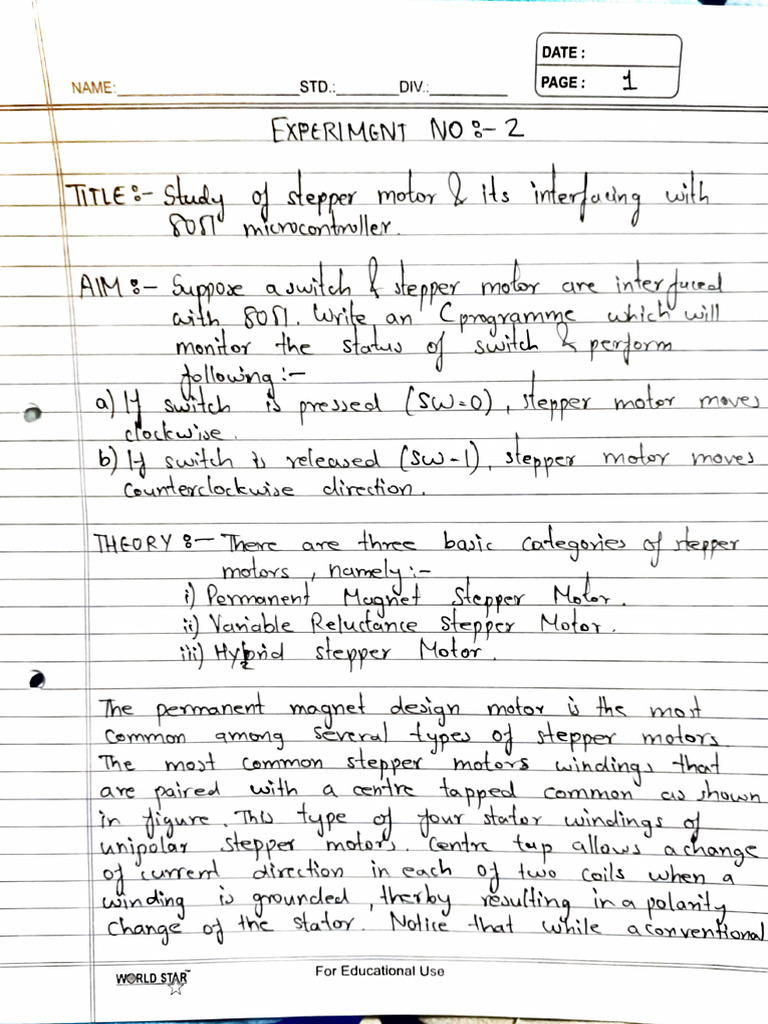 DATE :
NAME: STD.: DIV.: PAGE : 1
EXPERIMENT NO :- 2
TITLE :- Study of stepper motor & its interfacing with
8051 microcontroller.
AIM :- Suppose a switch & stepper motor are interfaced
with 8051. Write an C programme which will
monitor the status of switch & perform
following :-
a) If switch is pressed (SW=0), stepper motor moves
clockwise.
b) If switch is released (SW-1), stepper motor moves
counterclockwise direction.
THEORY :- There are three basic categories of stepper
motors, namely :-
i) Permanent Magnet Stepper Motor.
ii) Variable Reluctance Stepper Motor.
iii) Hybrid stepper Motor.
The permanent magnet design motor is the most
common among several types of stepper motors.
The most common stepper motors windings that
are paired with a centre tapped common as shown
in figure. This type of four stator windings of
unipolar stepper motors. Centre tap allows a change
of current direction in each of two coils when a
winding is grounded, therby resulting in a polarity
change of the stator. Notice that while a conventional
WORLD STAR™ For Educational Use